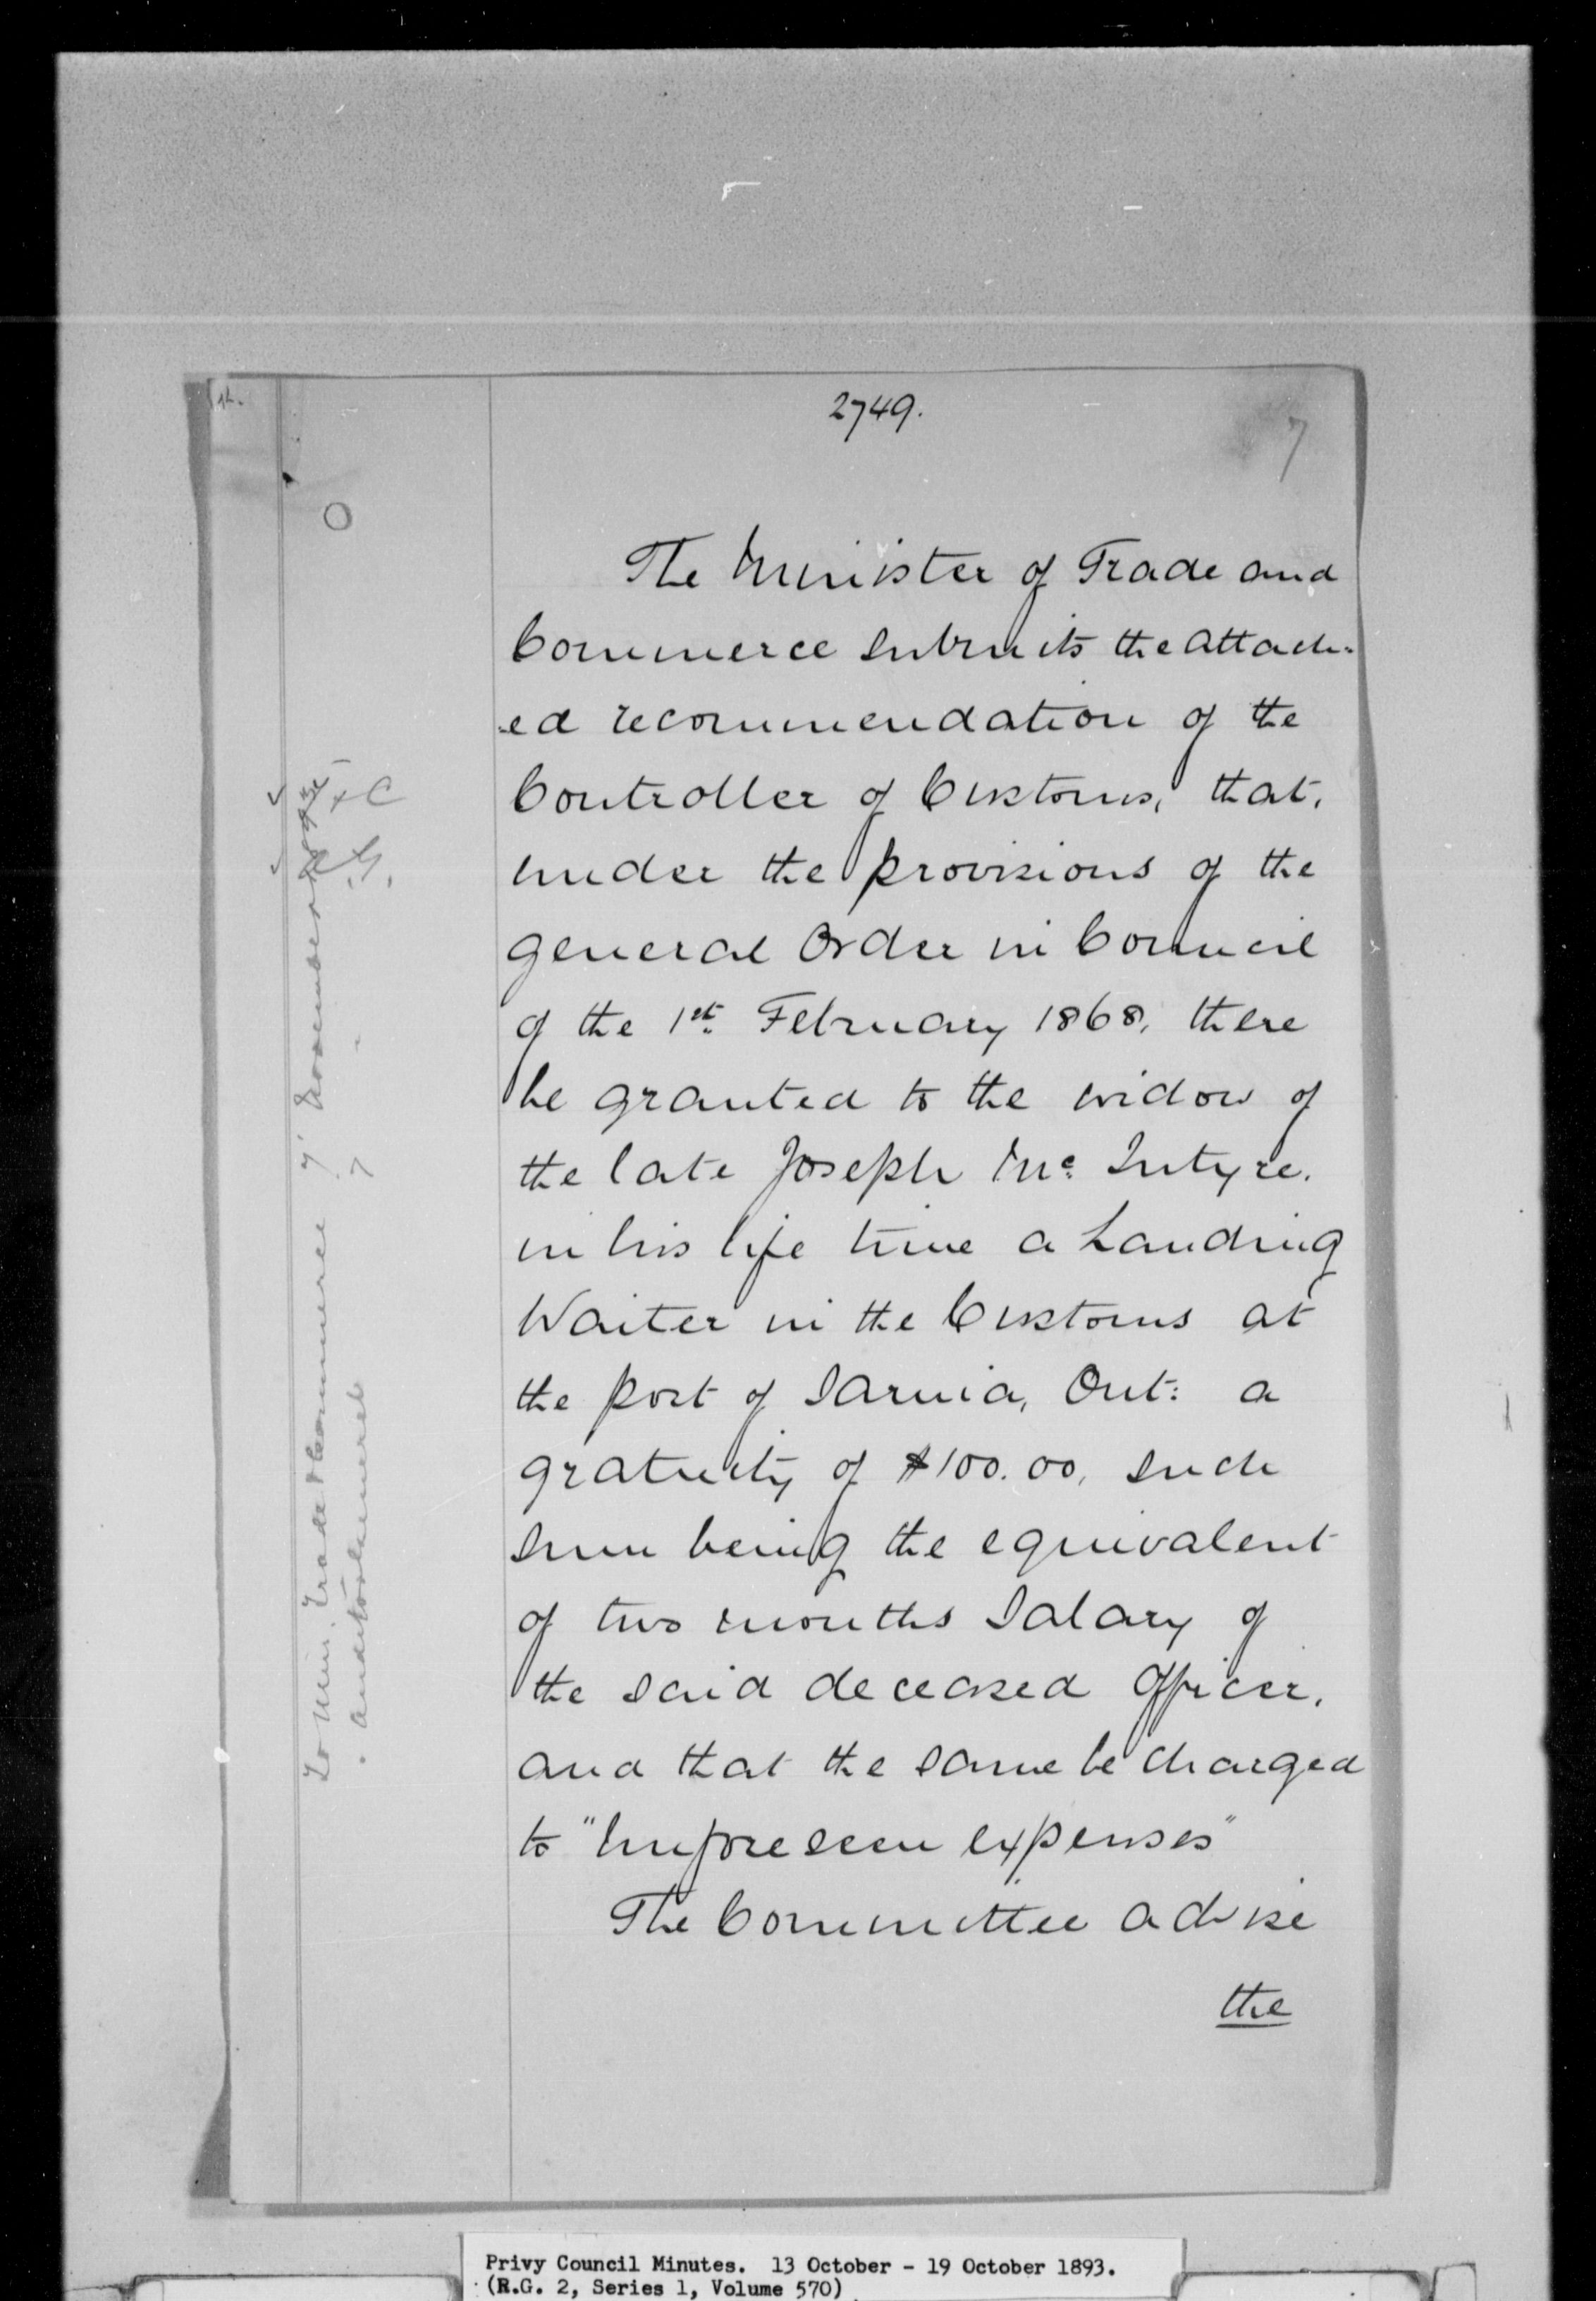 2749.
7
The Minister of Trade and
Commerce submits the attach-
ed recommendation of the
Controller of Customs, that,
under the provisions of the
general Order in Council
of the 1st February 1868, there
be granted to the widow of
the late Joseph Mc Intyre,
in his life time a Landing
Waiter in the Customs at
the port of Sarnia, Ont: a
gratuity of $100.00, such
sum being the equivalent
of two months salary of
the said deceased officer,
and that the same be charged
to "Unforeseen expenses"
The Committee advise
the
To Min. Trade & Commerce 7' November
T + C
A.G.
Privy Council Minutes. 13 October - 19 October 1893.
(R.G. 2, Series 1, Volume 570)